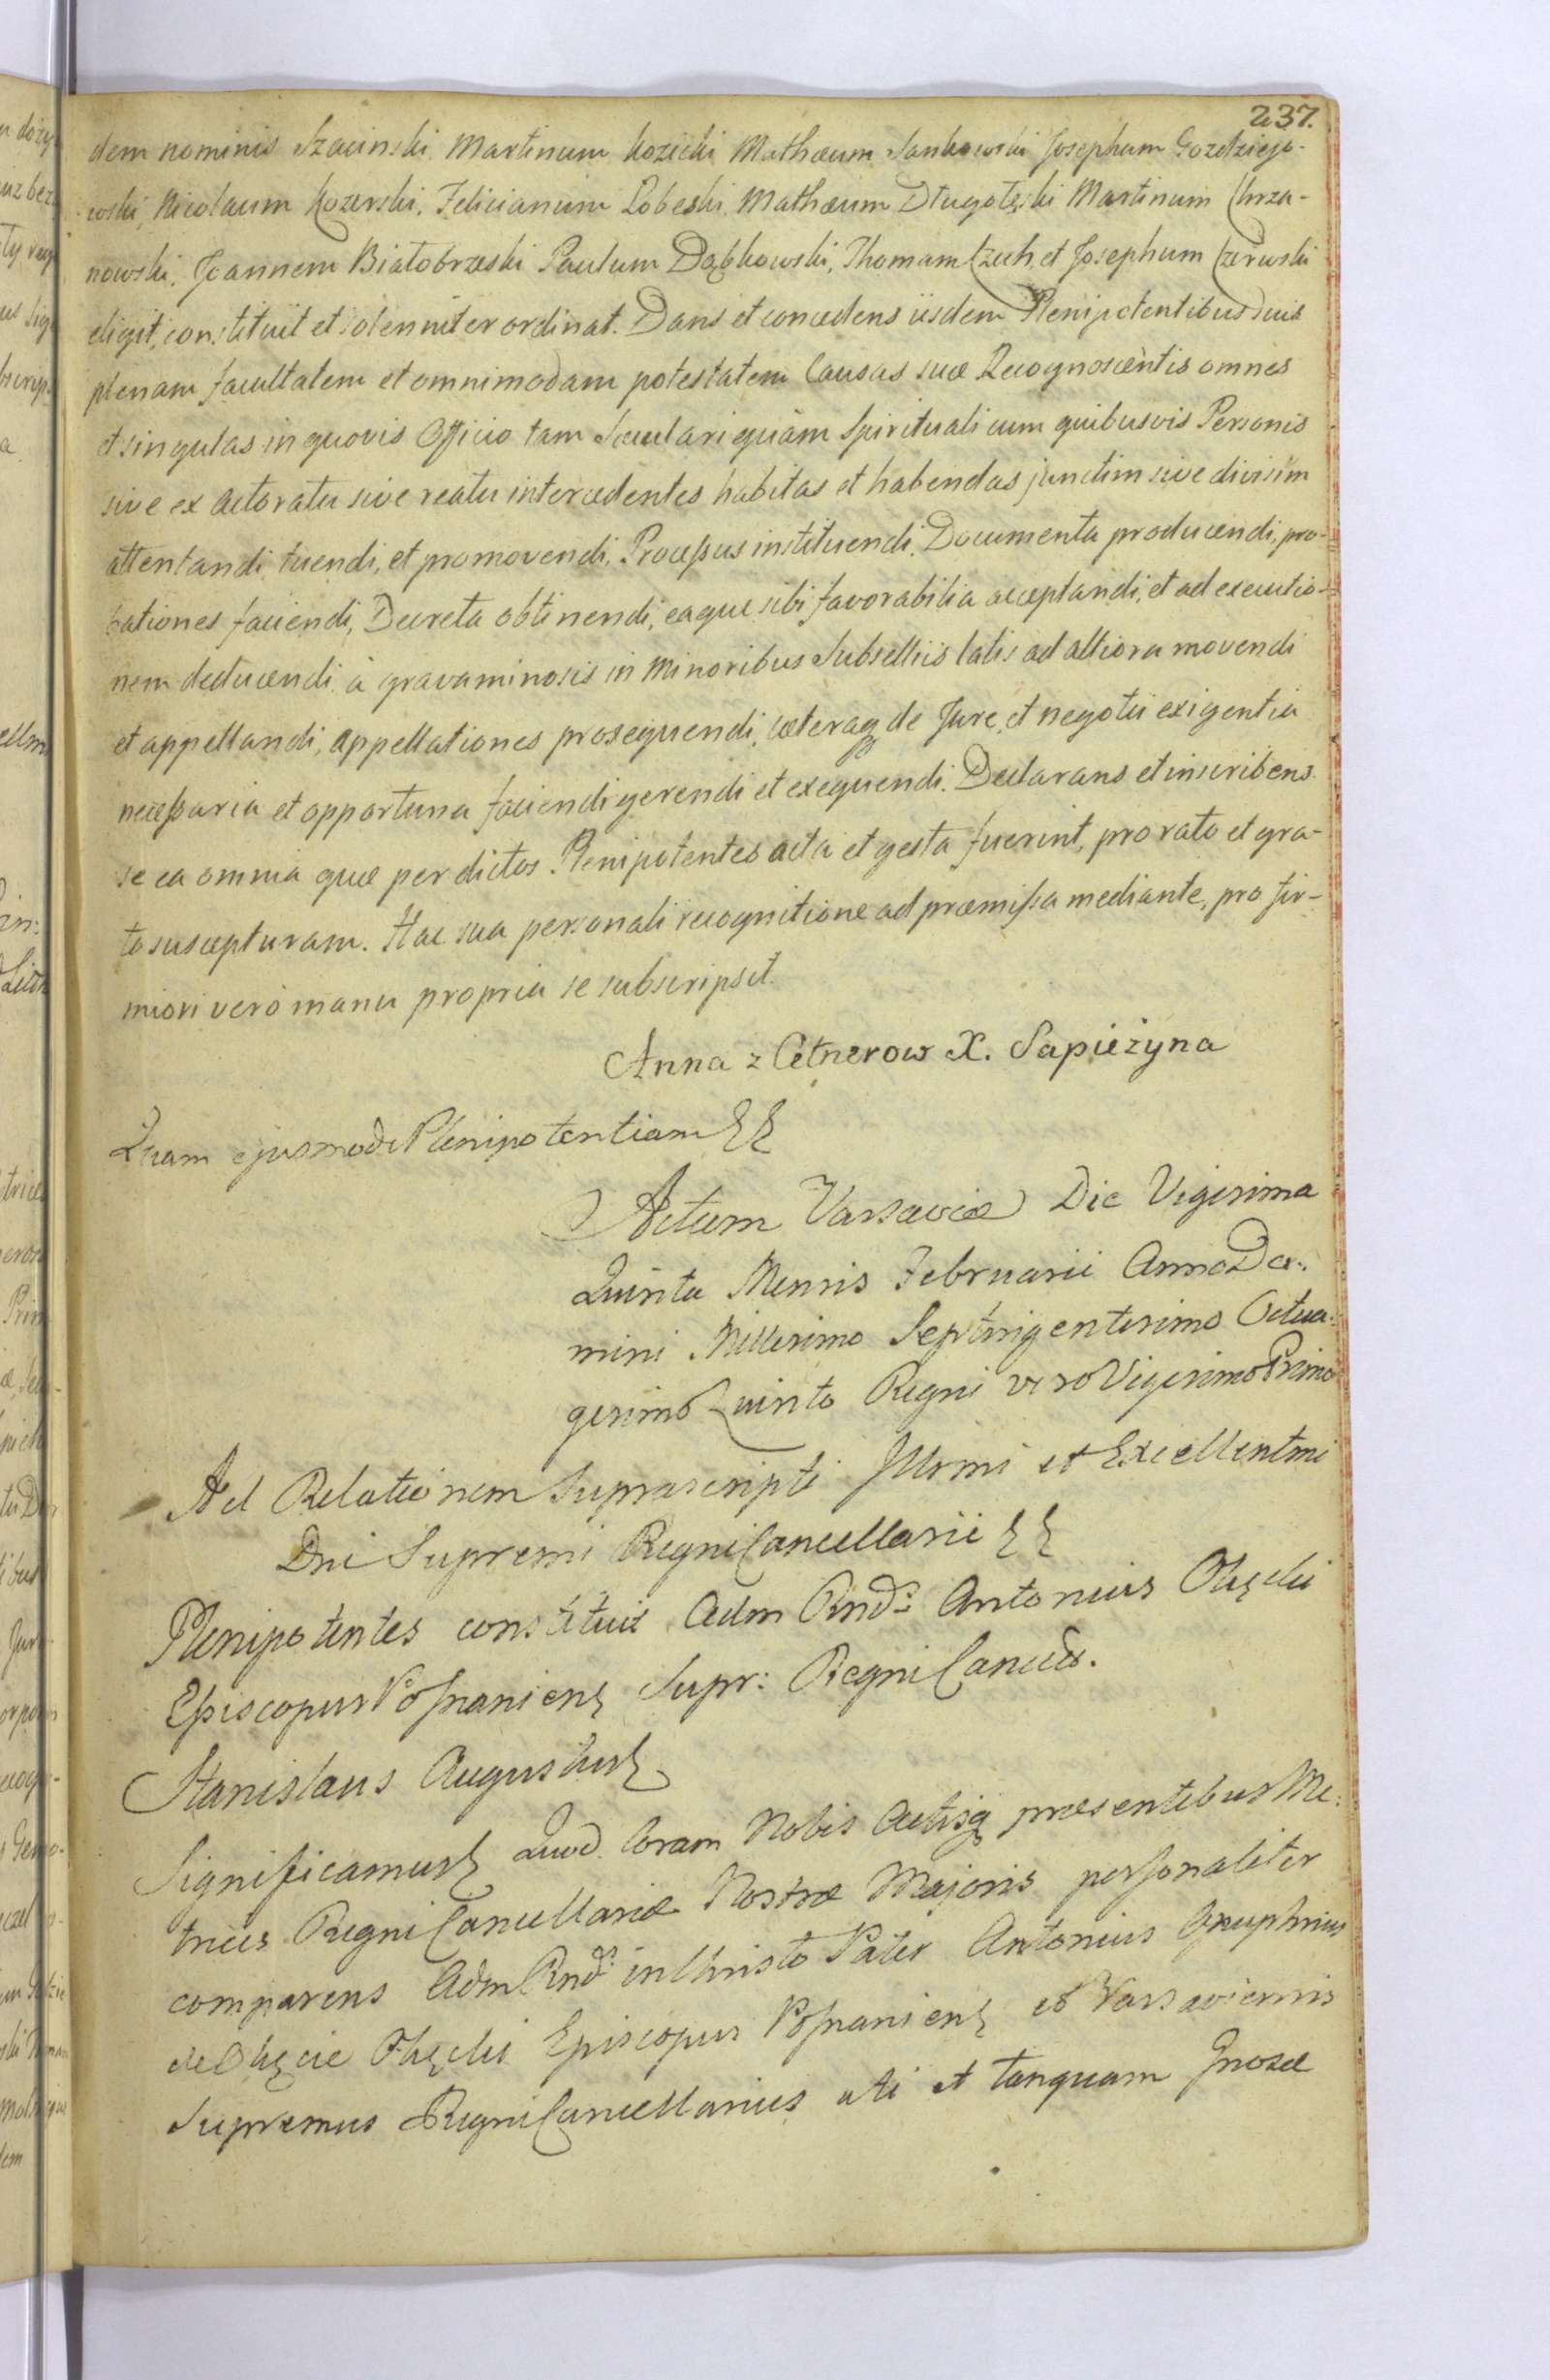 237.
dem nominis Szacinski, Martinum Kozicki Mathæum Jankowski Josephum Gozdziejo-
wski, Nicolaum Kozerski, Felicianum Łobeski, Mathæum Długołęski Martinum Chrza-
nowski, Joannem Białobrzeski Paulum Dąbkowski, Thomam Czuh, et Josephum Czerwski
eligit, constituit et solenniter ordinat. Dans et concedens iisdem Plenipotentibus suis
plenam facultatem et omnimodam potestatem Causas suæ Recognoscentis omnes
et singulas in quovis Officio tam Sæculari quàm Spirituali cum quibusvis Personis
sive ex actoratu sive reatu intercedentes habitas et habendas junctim sive divisim
attentandi, tuendi, et promovendi, Processus instituendi, Documenta producendi, pro-
bationes faciendi, Decreta obtinendi, eaque sibi favorabilia acceptandi, et ad executio-
nem deducendi, à gravaminosis in minoribus Subselliis latis ad altiora movendi
et appellandi, appellationes prosequendi, cæteraq de Jure, et negotii exigentia
necessaria et opportuna faciendi gerendi et exequendi. Declarans et inscribens
se ea omnia quæ per dictos Plenipotentes acta et gesta fuerint, pro rato et gra-
to suscepturam. Hac sua personali recognitione ad præmissa mediante, pro fir-
miori verò manu propria se subscripsit.
Anna z Cetnerow X. Sapieżyna
Quam ejusmodi Plenipotentiam
Actum Varsaviæ Die Vigesima
Quinta Mensis Februarii Anno Do:
mini Millesimo Septingentesimo Octua:
gesimo Quinto Regni vero Vigesimo Primo
Ad Relationem suprascripti Illrmi et Excellentmi
Dni Supremi Regni Cancellarii
Plenipotentes constituit Adm Rndꝰ Antonius Okęcki
Episcopus Posnaniens Supr: Regni Cancell.
Stanislaus Augustus
Significamus Quod Coram Nobis Actisq præsentibus Me:
trices Regni Cancellariæ Nostræ Majoris personaliter
comparens Adm Rndꝰ in Christo Pater Antonius Onuphrius
de Okęcie Okęcki Episcopus Posnaniens et Varsaviensis
Supremus Regni Cancellarius uti et tanquam Gnosæ